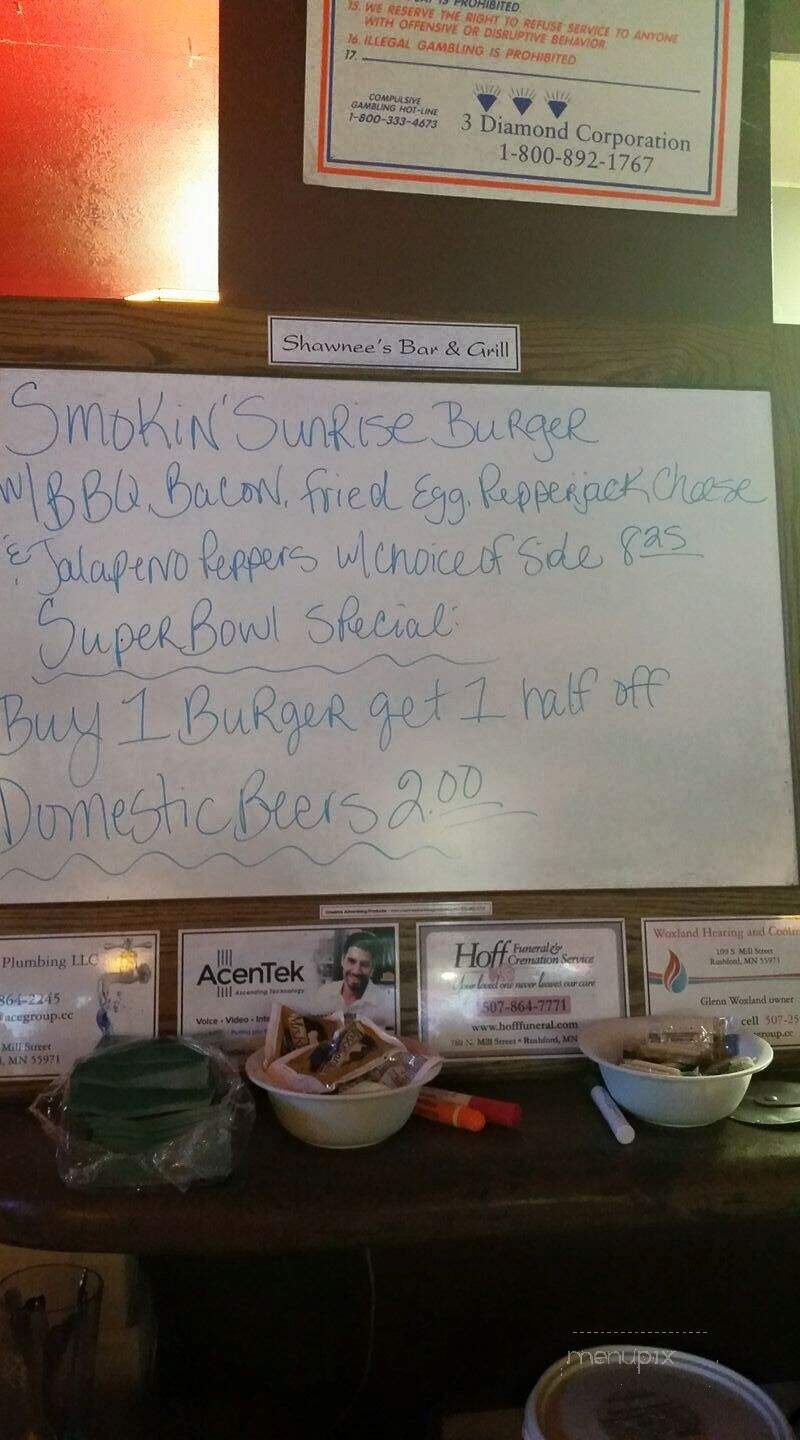 PROHIBITED.
15. WE RESERVE THE RIGHT TO REFUSE SERVICE TO ANYONE
WITH OFFENSIVE OR DISRUPTIVE BEHAVIOR
16. ILLEGAL GAMBLING IS PROHIBITED
17.
COMPULSIVE
GAMBLING HOT-LINE
1-800-333-4673
3 Diamond Corporation
1-800-892-1767
Shawnee's Bar & Grill
Smokin' Sunrise Burger
w/ BBQ, Bacon, fried Egg, Pepperjack Cheese
& Jalapeno Peppers w/ choice of Side 8.25
SuperBowl Special:
Buy 1 Burger get 1 half off
Domestic Beers 2.00
Plumbing LLC
864-2245
acegroup.cc
Mill Street
MN 55971
AcenTek
Ascending Technology
Voice • Video •
Hoff Funeral &
Cremation Service
Your loved one never leaves our care
507-864-7771
www.hofffuneral.com
N. Mill Street • Rushford, MN
Woxland Heating and
109 S. Mill Street
Rushford, MN 55971
Glenn Woxland owner
cell 507-25
menupix